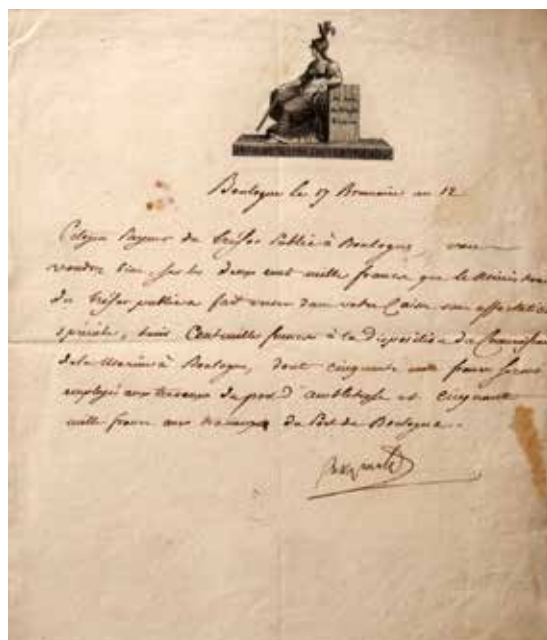 Boulogne le 17 Brumaire an 12
Citoyen Payeur du trésor Public à Boulogne, vous
voudrez bien, sur les deux cent mille francs que le Ministre
du trésor public a fait verser dans votre Caisse sans affectation
spéciale, tenir Cent mille francs à la disposition du Commissaire
de la Marine à Boulogne, dont cinquante mille francs seront
employés aux travaux du port d'ambleteuse et cinquante
mille francs aux travaux du Port de Boulogne.
Bonaparte